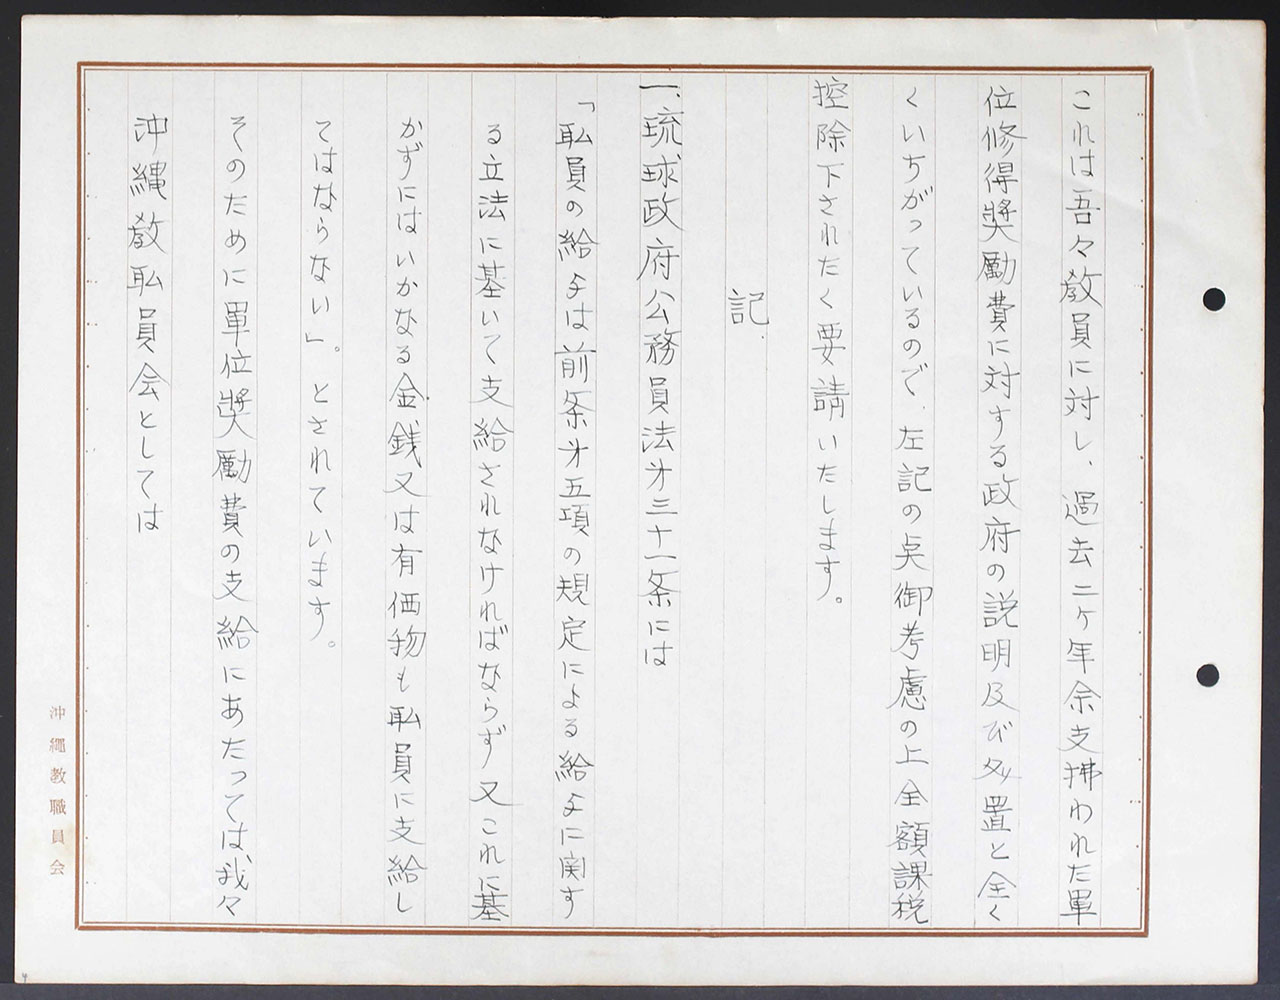 これは吾々教員に対し、過去二ヶ年余支拂われた單
位修得奬励費に対する政府の説明及び処置と全く
くいちがっているので、左記の点御考慮の上全額課税
控除下されたく要請いたします。
記
一、琉球政府公務員法才三十一条には
「耺員の給よは前条才五項の規定による給よに関す
る立法に基いて支給されなければならず又これに基
かずにはいかなる金銭又は有価物も耺員に支給し
てはならない」。とされています。
そのために單位奬励費の支給にあたっては我々
沖縄教耺員会としては
沖繩教職員会